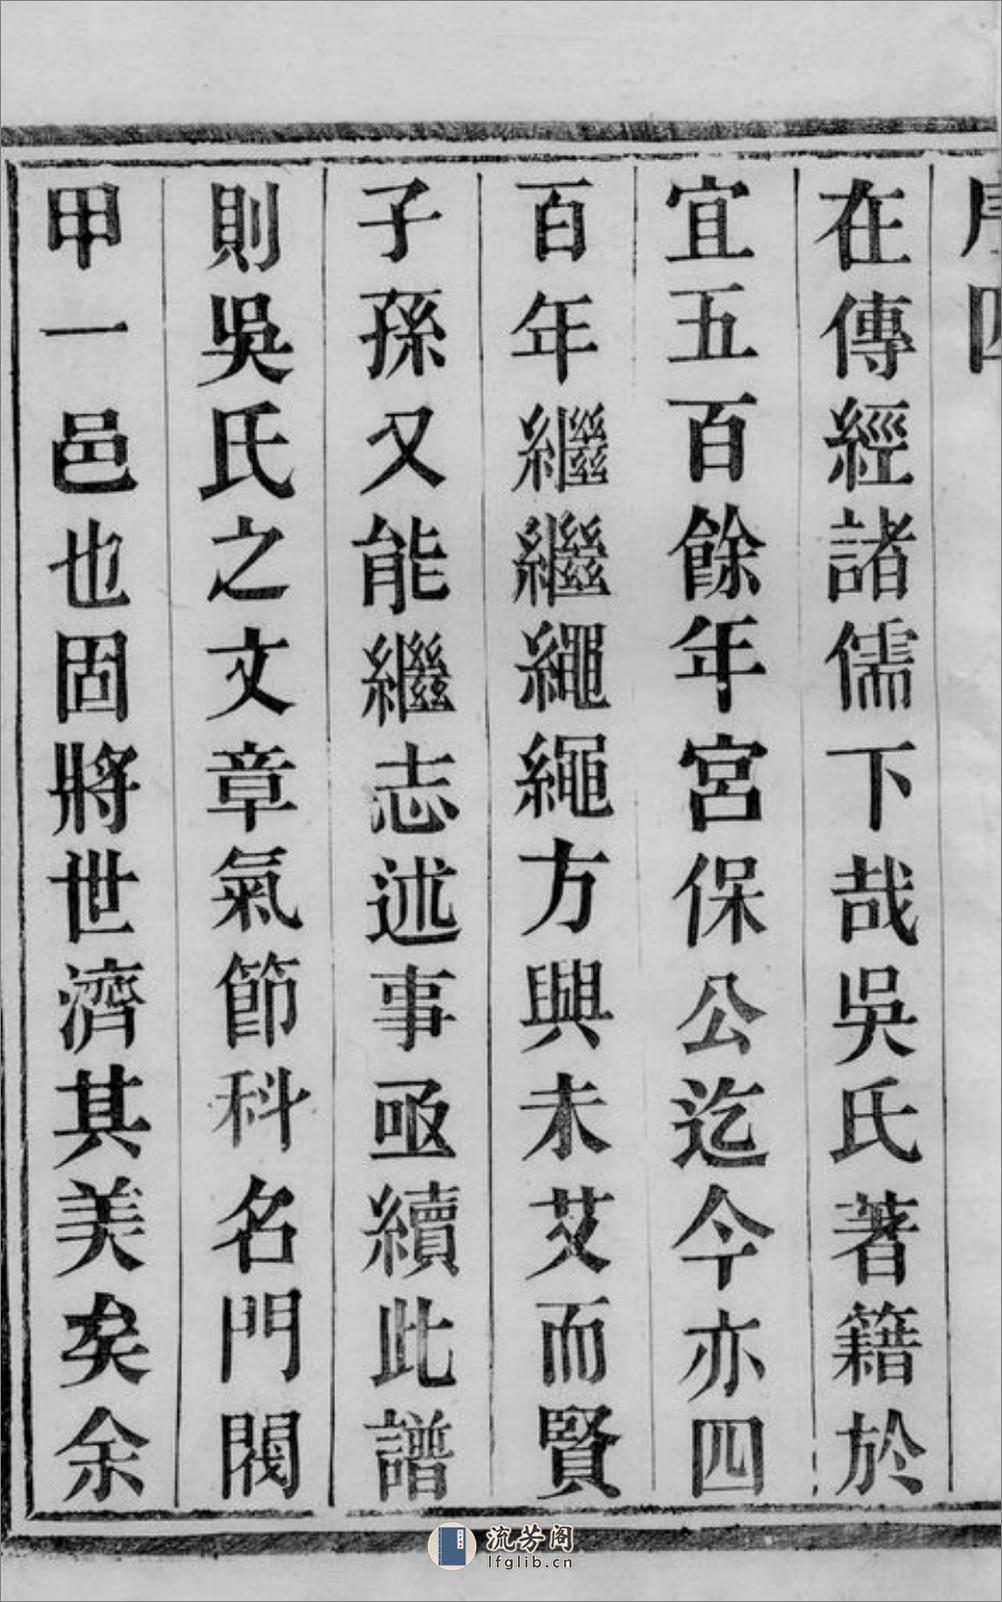 序四
在傳經諸儒下哉吳氏著籍於
宜五百餘年宮保公迄今亦四
百年繼繼繩繩方興未艾而賢
子孫又能繼志述事亟續此譜
則吳氏之文章氣節科名門閥
甲一邑也固將世濟其美矣余
流芳阁
lfglib.cn